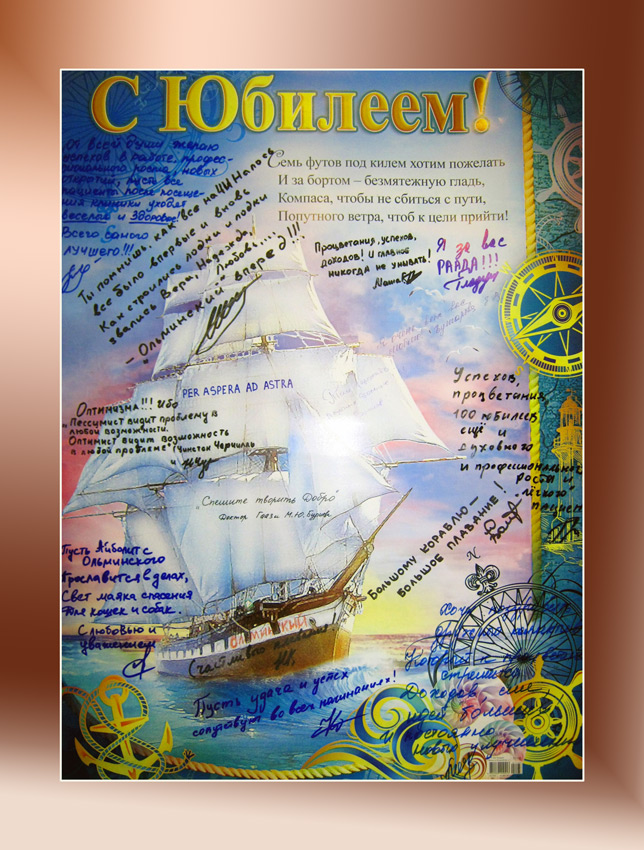 С Юбилеем!
Семь футов под килем хотим пожелать
И за бортом – безмятежную гладь,
Компаса, чтобы не сбиться с пути,
Попутного ветра, чтоб к цели прийти!
От всей души желаю
успехов в работе, профес-
сионального роста, новых
пусть все
пациенты после посеще-
ния клиники уходят
веселы и Здоровы!
Всего самого
лучшего!!!
Ты помнишь, как все начиналось
все было впервые и вновь
Как строились лодки и лодки
звались Вера, Надежда,
Любовь....
- Ольминский вперед!!!
Процветания, успехов,
доходов! И главное
никогда не унывать!
Я за вас
РАААДА!!!
PER ASPERA AD ASTRA
Оптимизма!!! Ибо
"Пессимист видит проблему в
любой возможности.
Оптимист видит возможность
в любой проблеме" Уинстон Черчилль
Успехов,
процветания,
100 юбилеев
ещё и
духовного
и профессионального
роста и
лёгкого
"Спешите творить Добро"
Доктор Гааз М.Ю.
Большому кораблю –
большое плавание!
N
Пусть Айболит с
Ольминского
Прославится в делах,
Свет маяка спасения
Для кошек и собак.
С любовью и
уважением
ОЛЬМИНСКИЙ
Счастливо
Пусть удача и успех
сопутствуют во всех начинаниях!
Хочу
стремится
Доходов
больших
И постоянно
нового